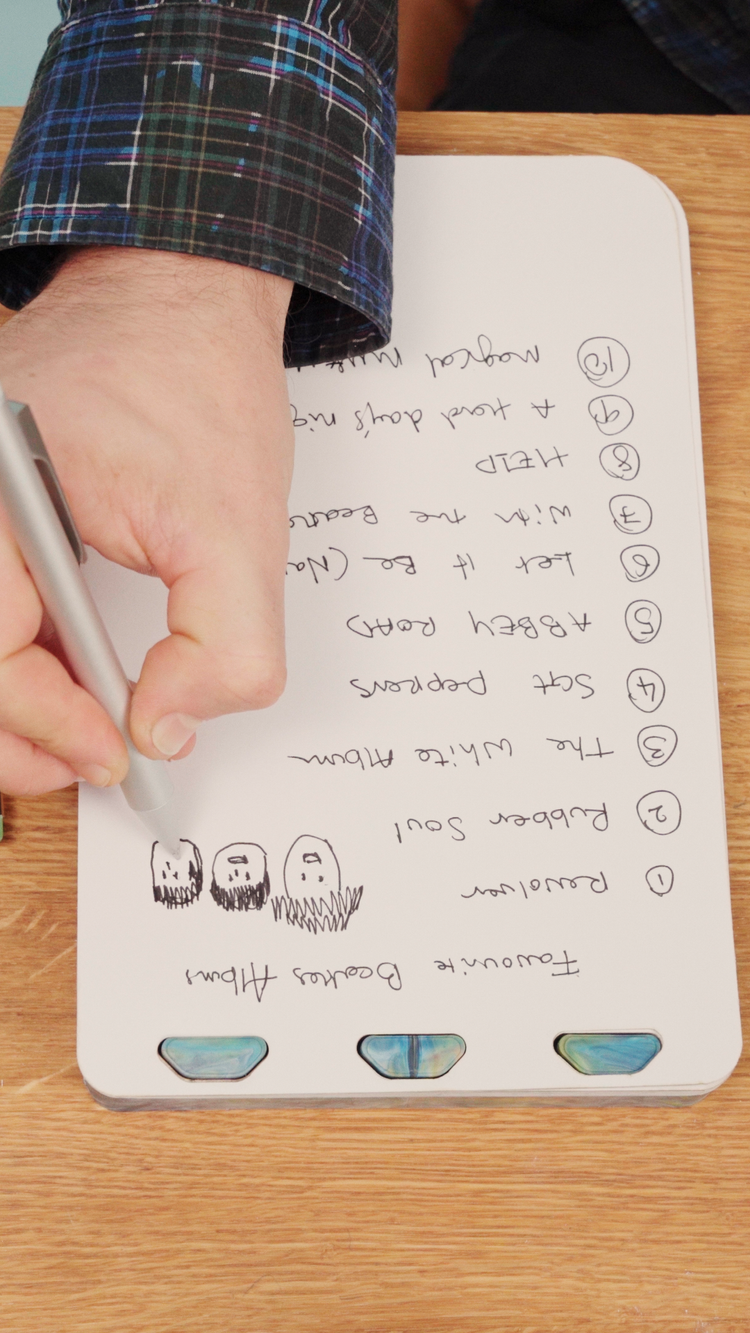 Favourite Beatles Albums
① Revolver
② Rubber Soul
③ The White Album
④ Sgt peppers
⑤ ABBEY ROAD
⑥ Let it Be (Na
⑦ With the Beatle
⑧ HELP
⑨ A Hard day's nig
⑩ Magical Myst